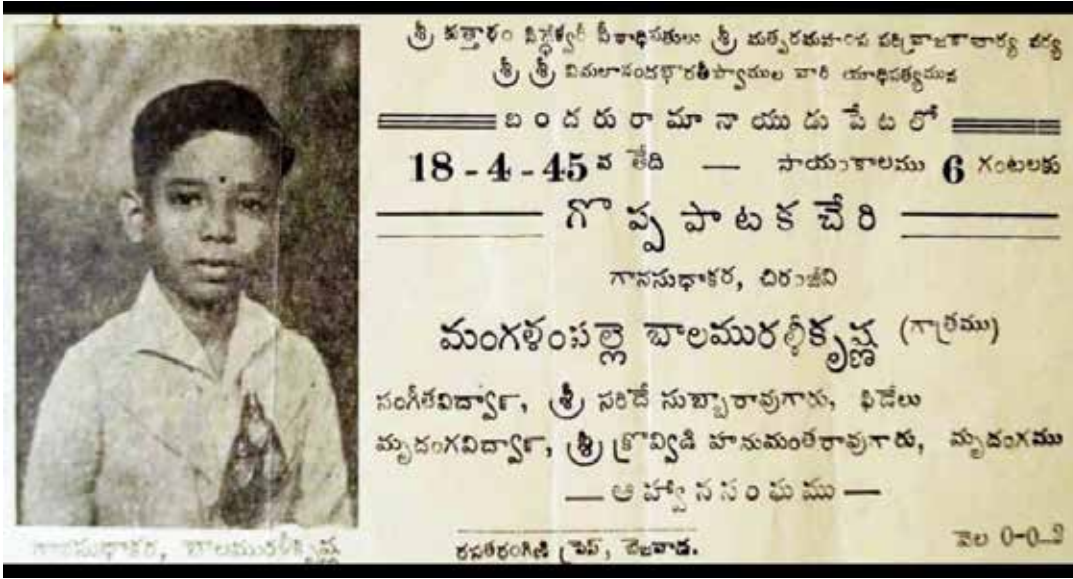 శ్రీ కుర్తాళం సిద్ధేశ్వరీ పీఠాధిపతులు శ్రీ మత్పరమహంస పరివ్రాజకాచార్య వర్య
శ్రీ శ్రీ విమలానందభారతీస్వాముల వారి యాధిపత్యమున
బందరురామానాయుడుపేటలో
18-4-45 వ తేది — సాయంకాలము 6 గంటలకు
గొప్ప పాటకచేరి
గానసుధాకర, చిరంజీవి
మంగళంపల్లె బాలమురళీకృష్ణ (గాత్రము)
సంగీతవిద్వాన్, శ్రీ సరిదే సుబ్బారావుగారు, ఫిడేలు
మృదంగవిద్వాన్, శ్రీ క్రొవ్విడి హనుమంతరావుగారు, మృదంగము
— ఆహ్వానసంఘము —
గానసుధాకర, బాలమురళీకృష్ణ
రసతరంగిణీ ప్రెస్, బెజవాడ.
వెల